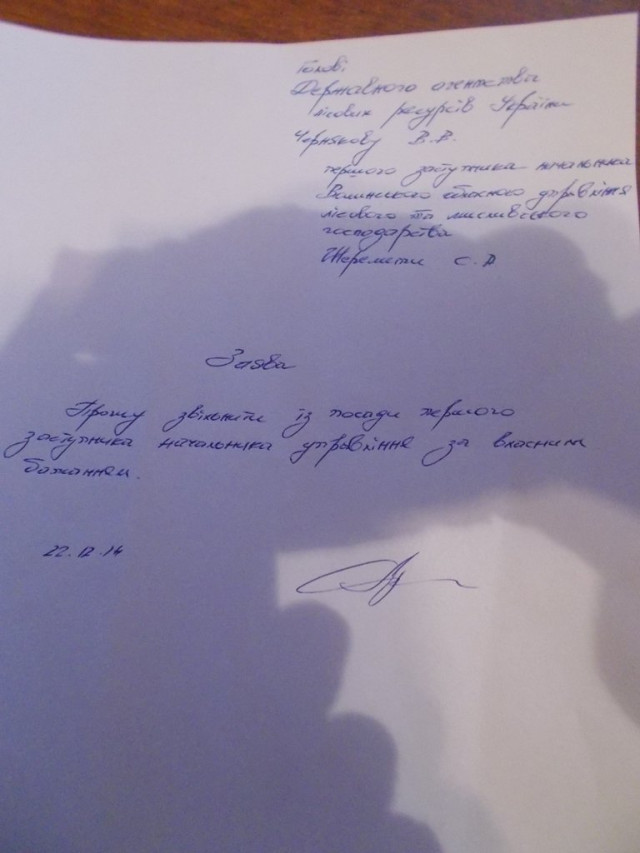 Голові
Державного агентства
лісових ресурсів України
Чернякову В.В.
першого заступника начальника
Волинського обласного управління
лісового та мисливського
господарства
Шеремети С.Д
Заява
Прошу звільнити із посади першого
заступника начальника управління за власним
бажанням.
22.12.14